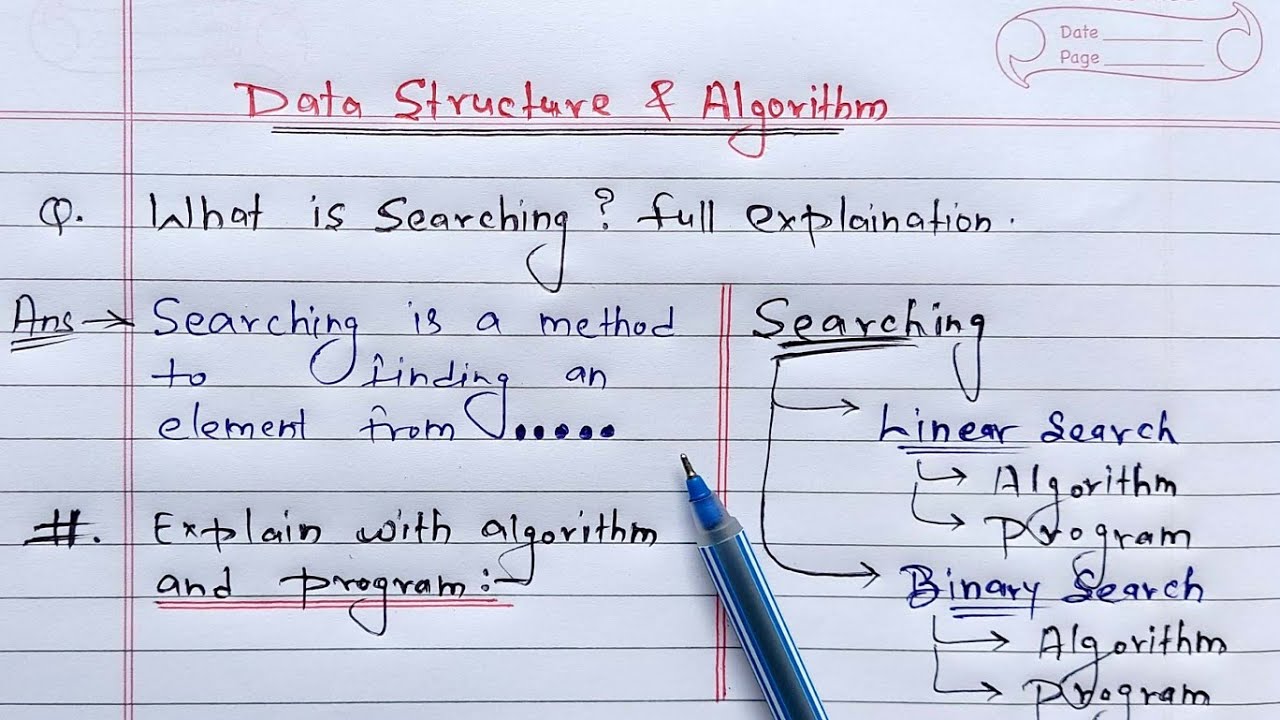 Date
Page
Data Structure & Algorithm
Q. What is Searching? full explaination.
Ans → Searching is a method
to finding an
element from .....
#. Explain with algorithm
and program:-
Searching
→ Linear Search
→ Algorithm
→ Program
→ Binary Search
→ Algorithm
→ Program